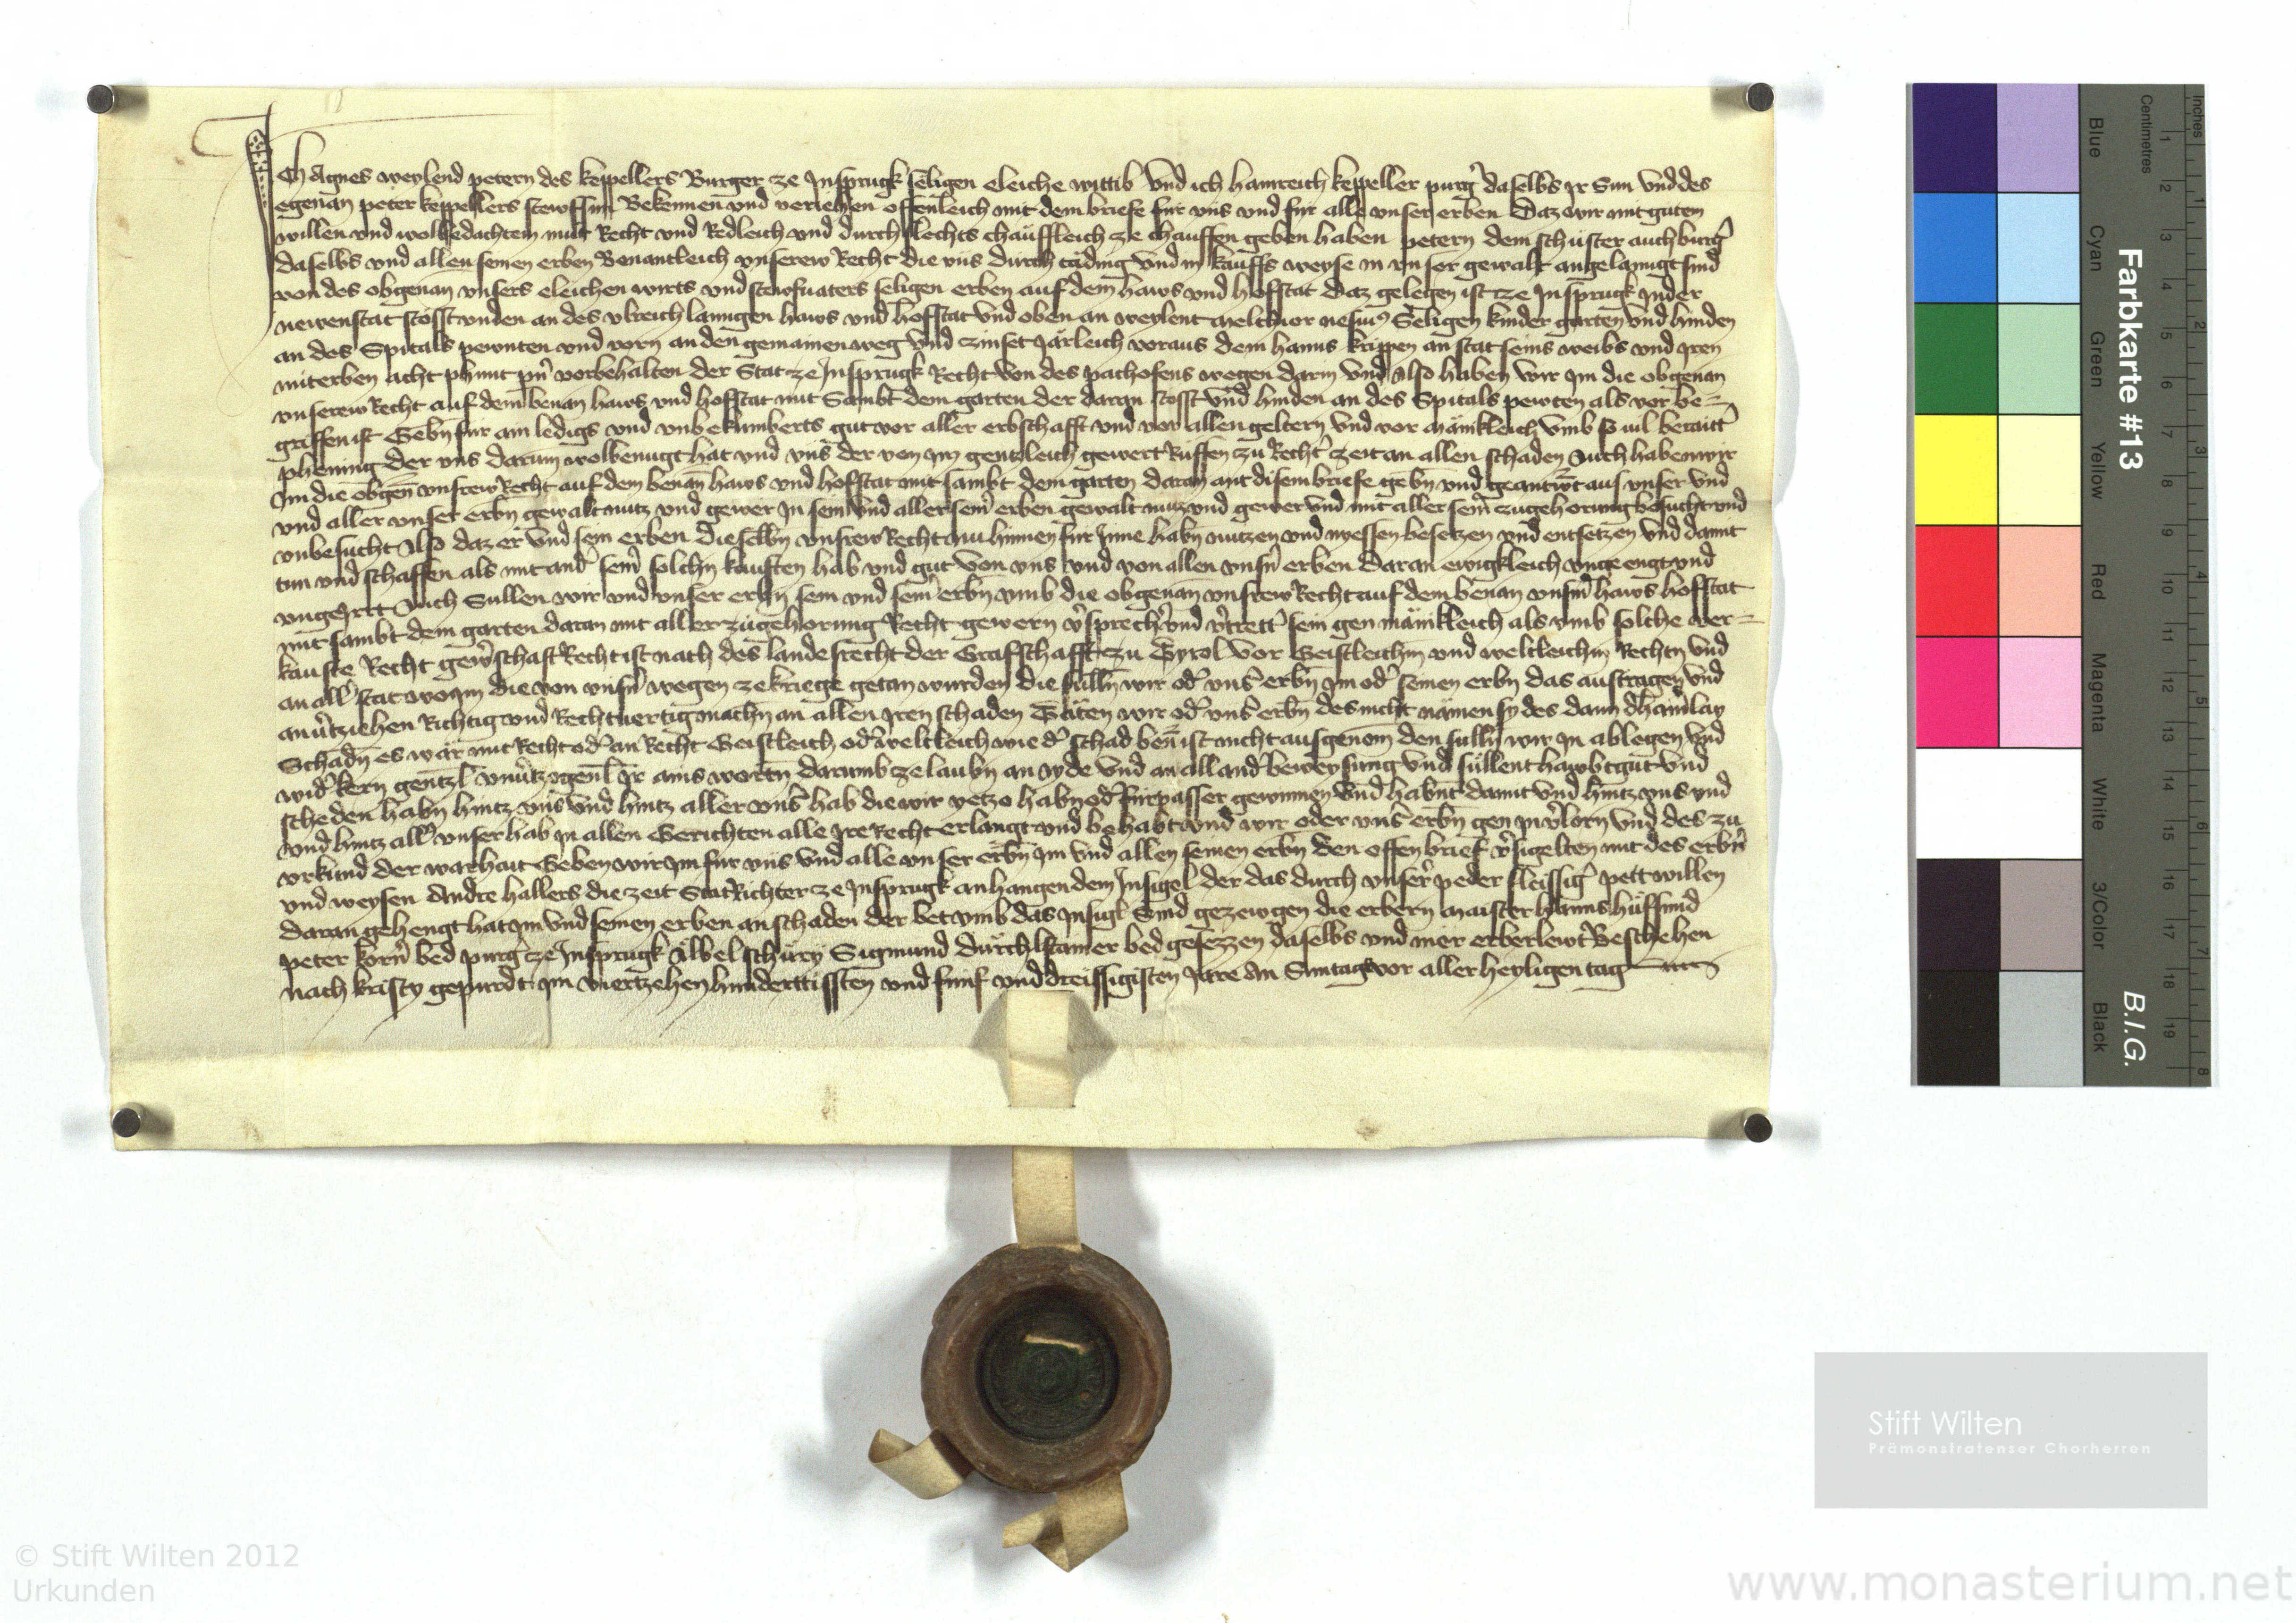 Ich Agnes weylend petern des keppellers Burger ze Insprugk seligen eleiche wittib Vnd ich hainreich keppeller purg̉ daselbs ir Sun Vnd des
egenan̄ peter keppellers stewffsun Bekennen vnd veriehen offenleich mit dem briefe fur vns vnd fur alle vnser erben Daz wir mit guten
willen vnd wolbedachtem mut Recht vnd Redleich vnd durchslechts chaüffleich ze chauffen geben haben petern dem schuster auch burg̉
daselbs vnd allen seinen erben Benantleich vnserew Recht die vns durch täding vnd in kauffs weyse in vnser gewalt angelanngt sind
von des obgenan̄ vnsers eleichen wirts vnd stewfuaters seligen erben auf dem haws vnd hofstat Daz gelegen ist ze Insprugk In der
newenstat stosst vnden an des vlreich lanngen haws vnd hofstat vnd oben an weylent melchior Seligen kinder garten vnd hinden
an des Spitals pewnten vnd vorn an den gemainen weg Vnd zinset Järleich voraus dem hanns krippen an stat seins weibs vnd iren
miterben acht phunt pn̄ vorbehalten der Stat ze Insprugk Recht von des pachofens wegen darin Vnd also haben wir Im die obgenan̄
vnserew Recht auf dem benan̄ haws vnd hofstat mit Sambt dem garten der daran stosst vnd hinden an des Spitals pewten als vor be=
griffen ist Gebn̄ fur ain ledigs vnd vnbekumberts gut vor aller erbschafft vnd vor allen geltern Vnd vor mäinkleich Vmb so uil beraitt̉
phening der vns darum wolbenugt hat vnd vns der von im gentzleich gewert Rüffen zu Recht̉ zeit an allen schaden Auch haben wir
Im die obgen̄ vnsrew Recht auf dem benan̄ haws vnd hofstat mit sambt dem garten daran mit disem briefe gebn̄ vnd geantw̉t aus vnser vnd
vnd aller vnser erbn̄ gewalt nutz vnd gewer In sein vnd aller sein̉ erben gewalt nutz vnd gewer vnd mit aller sein̉ zugehorung besucht vnd
vnbesucht Also daz er vnd sein erben dieselbn̄ vnsrew Recht nu hinnen fur Inne habn̄ nutzen vnd niessen besetzen vnd entsetzen vnd damit
tun vnd schaffen als mit and̉ sein̉ solchn̄ kauften hab vnd gut von vns vnd von allen vnsn̉ erben daran ewigkleich vngeengt vnd
vngeIrret Auch Sullen wir vnd vnser erbn̄ sein vnd sein̉ erbn̄ vmb die obgenan̄ vnsrew Recht auf dem benan̄ vnsm̉ haws hofstat
mit sambt dem garten daran mit aller zugehorung Recht gewern v̉sprech̉ vnd v̉trett̉ sein gen mäinkleich als vmb solche ver=
kaufte Recht gew̉schaft Recht ist nach des landesrecht der Grafschafft zu Tyrol Vor Geistleichm̄ vnd weltleichm̄ Rechtn̄ vnd
an all̉ stat wo im die von vnsn̉ wegen ze kriege getan wurden die sulln̄ wir od̉ vns̉ erbn̄ im od̉ seinen erbn̄ das austragen vnd
anv̉tziehen Richtig vnd Rechtuertig machn̄ an allen iren schaden Täten wir od̉ vns̉ erbn̄ des nicht nämen sy des dann dhain̉lay
Schadn̄ es wär mit Recht od̉ an Recht Geistleich od̉ weltleich wie d̉ schad ben̄ ist nicht ausgenom̄ den sulln̄ wir in ablegen vnd
wid̉kern gentzl̄ vnv̉tzogenl̄ ir ains wortn̄ darumb ze laubn̄ an ayde vnd an all and̉ beweysung vnd sullent hawbtgut vnd
scheden habn̄ hintz vns vnd hintz aller vns̉ hab die wir yetzo habn̄ od̉ fürpasser gewinnen vnd habn̄t damit vnd hintz vns vnd
vnd hintz all̉ vnser hab in allen Gerichten alle ire Recht erlangt vnd behabt vnd wir oder vns̉ erbn̄ gen in v̉lorn vnd des zu
vrkund der warhait Geben wir im fur vns vnd alle vnser erbn̄ im vnd allen seinen erbn̄ den offen brief v̉sigelten mit des erbn̉
vnd weysen Andre hallers die zeit StatRichter ze Insprugk anhangendem Insigel der das durch vnser̉ peder fleissig̉ pett willen
daran gehengt hat im vnd seinen erben an schaden der bet vmb das insigl Sind gezewgen die erbern maister hanns hüffsmid
peter korn̉ bed purg̉ ze Insprugk Albel schürr Sigmund bed gesezzen daselbs vnd mer erberlewt̉ Beschehen
nach kristy gepurdt im viertzehenhunderttissten vnd funf vnd dreissigisten Jare An Suntag vor aller heyligen tag
Farbkarte #13
B.I.G.
Centimetres
Inches
Blue
Cyan
Green
Yellow
Red
Magenta
White
3/Color
Black
1 2 3 4 5 6 7 8 9 10 11 12 13 14 15 16 17 18 19
1 2 3 4 5 6 7 8
Stift Wilten
Prämonstratenser Chorherren
© Stift Wilten 2012
Urkunden
www.monasterium.net